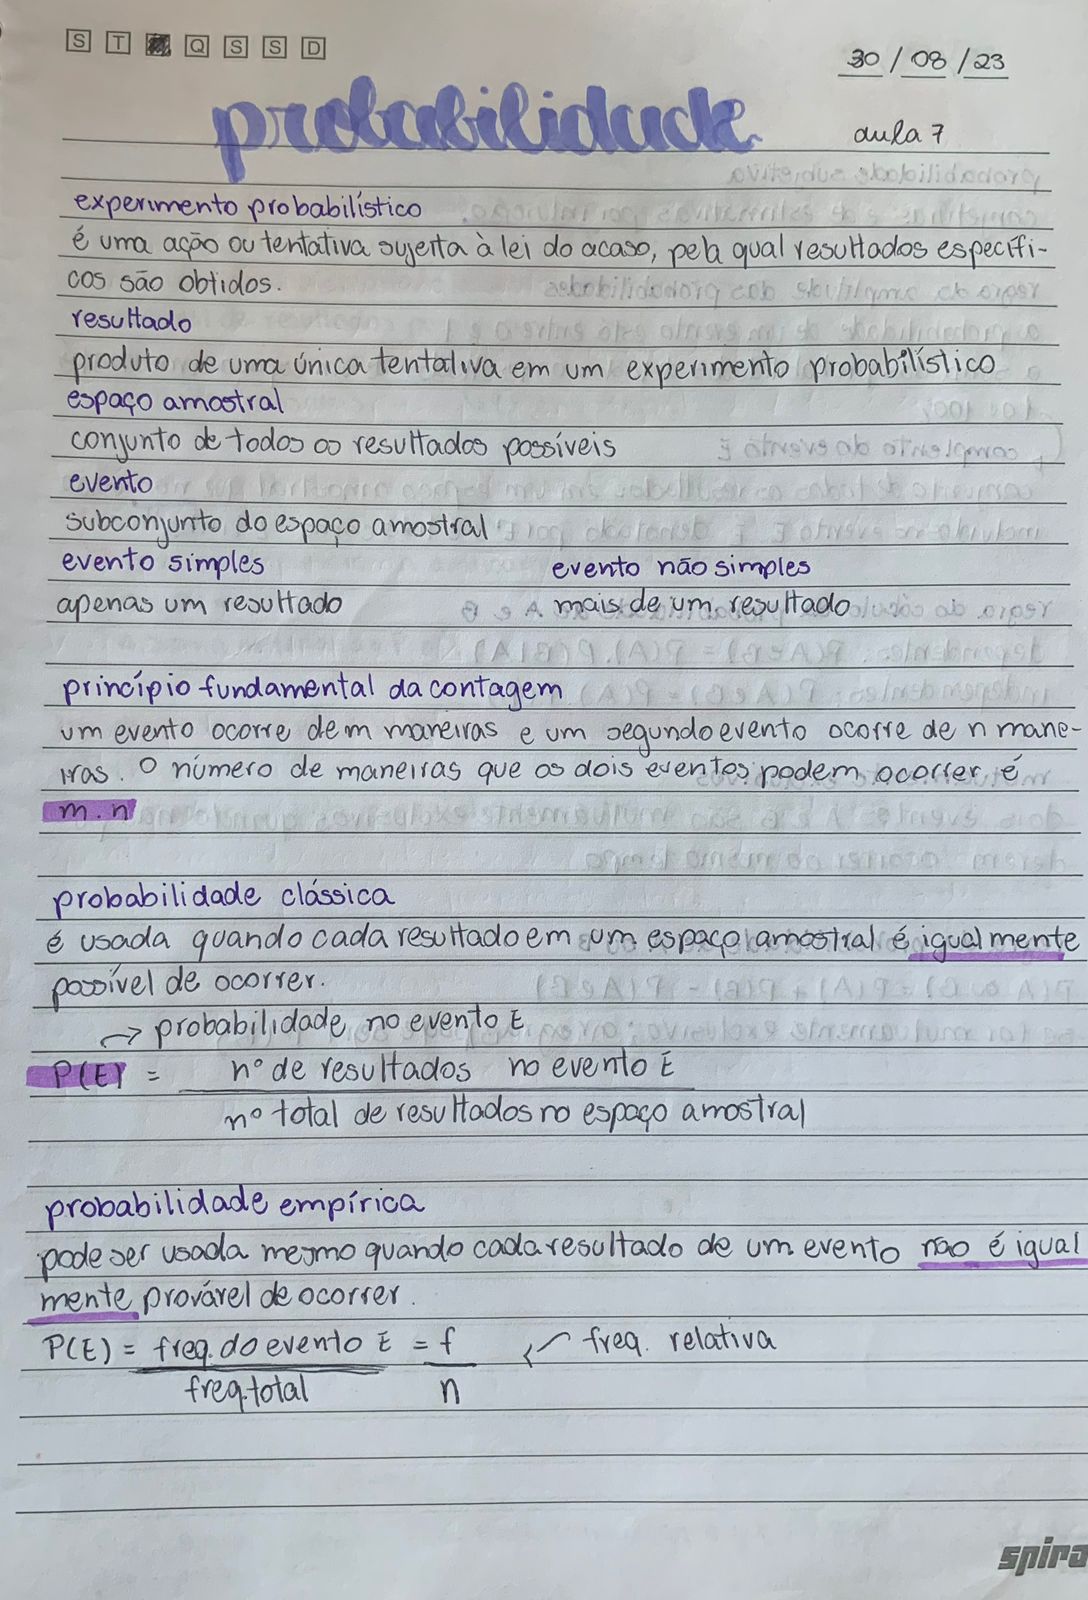 S T Q S S D
30/08/23
probabilidade
aula 7
experimento probabilístico
é uma ação ou tentativa sujeita à lei do acaso, pela qual resultados específi-
cos são obtidos.
resultado
produto de uma única tentativa em um experimento probabilístico
espaço amostral
conjunto de todos os resultados possíveis
evento
subconjunto do espaço amostral
evento simples evento não simples
apenas um resultado mais de um resultado
princípio fundamental da contagem
um evento ocorre de m maneiras e um segundo evento ocorre de n mane-
iras. O número de maneiras que os dois eventos podem ocorrer é
m.n
probabilidade clássica
é usada quando cada resultado em um espaço amostral é igualmente
possível de ocorrer.
→ probabilidade no evento E
P(E) = nº de resultados no evento E
nº total de resultados no espaço amostral
probabilidade empírica
pode ser usada mesmo quando cada resultado de um evento não é igual
mente provável de ocorrer.
P(E) = freq. do evento E = f ← freq. relativa
freq. total n
spira